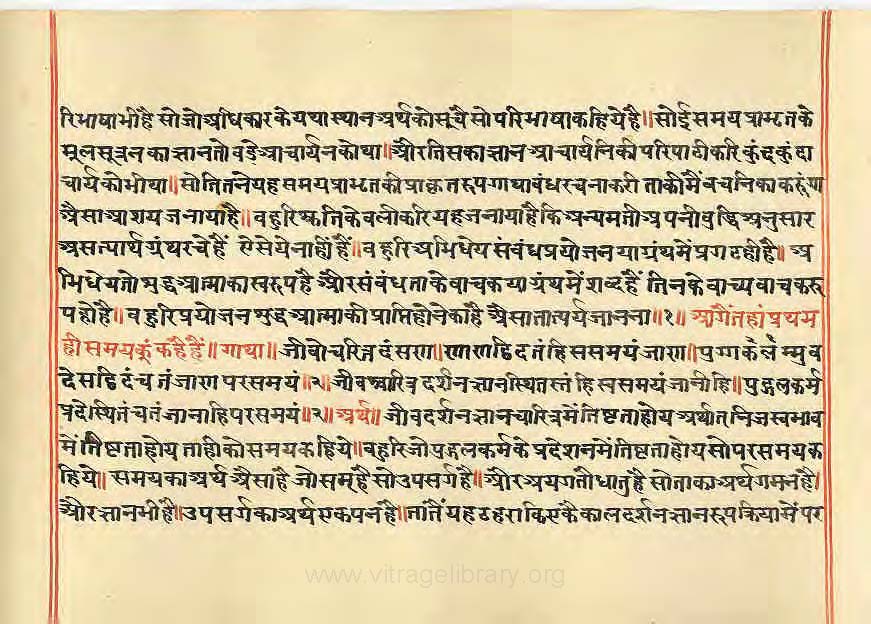 रिभाषाभीहै सो जो अधिकार के यथास्थान अर्थ को सूचै सो परिभाषा कहिये है॥ सोई समयप्राभृत के
मूलसूत्रन का ज्ञान तो वडे आचार्यन को था॥ और तिसका ज्ञान आचार्यनि की परिपाटी करि कुंदकुंदा
चार्य को भी था॥ सो तितनें यह समयप्राभृत की प्राकृतरूप गाथाबंध रचना करी ताकी मैं वचनिका करूंगा
अैसा आशय जनाया है॥ बहुरि श्रुतकेवली करि यह जनाया है कि अन्यमती अपनी बुद्धि अनुसार
असत्यार्थ ग्रंथ रचे हैं ऐसे ये नाहीं हैं॥ बहुरि अभिधेय संबंध प्रयोजन या ग्रंथ में प्रगट ही है॥ अ
भिधेय तो शुद्ध आत्मा का स्वरूप है और संबंध ताके वाचक या ग्रंथ में शब्द हैं तिनके वाच्यवाचकरू
प हो है॥ बहुरि प्रयोजन शुद्ध आत्मा की प्राप्ति होने का है अैसा तात्पर्य जानना॥१॥ आगैं तहां प्रथम
ही समयकूं कहै हैं॥ गाथा॥ जीवो चरित्त दंसण॥ णाणट्ठिद तंहि ससमयं जाण॥ पुग्गलकम्मुव
देसट्ठिदं च तं जाण परसमयं॥२॥ जीवश्चारित्रदर्शनज्ञानस्थितस्तं हि स्वसमयं जानीहि॥ पुद्गलकर्म
प्रदेशस्थितं च तं जानाहि परसमयं॥२॥ अर्थ॥ जीव दर्शनज्ञानचारित्र में तिष्टता होय अर्थात् निजस्वभाव
में तिष्टता होय ताही को समय कहिये॥ बहुरि जो पुद्गलकर्म के प्रदेशन में तिष्टता होय सो परसमय क
हिये॥ समय का अर्थ अैसा है जो सम् है सो उपसर्ग है॥ और अय गतौ धातु है सो ताका अर्थ गमन है॥
और ज्ञान भी है॥ उपसर्ग का अर्थ एकपन है॥ तातैं यह ठहरा कि एकै काल दर्शनज्ञानरूप क्रिया में पर
www.vitragelibrary.org